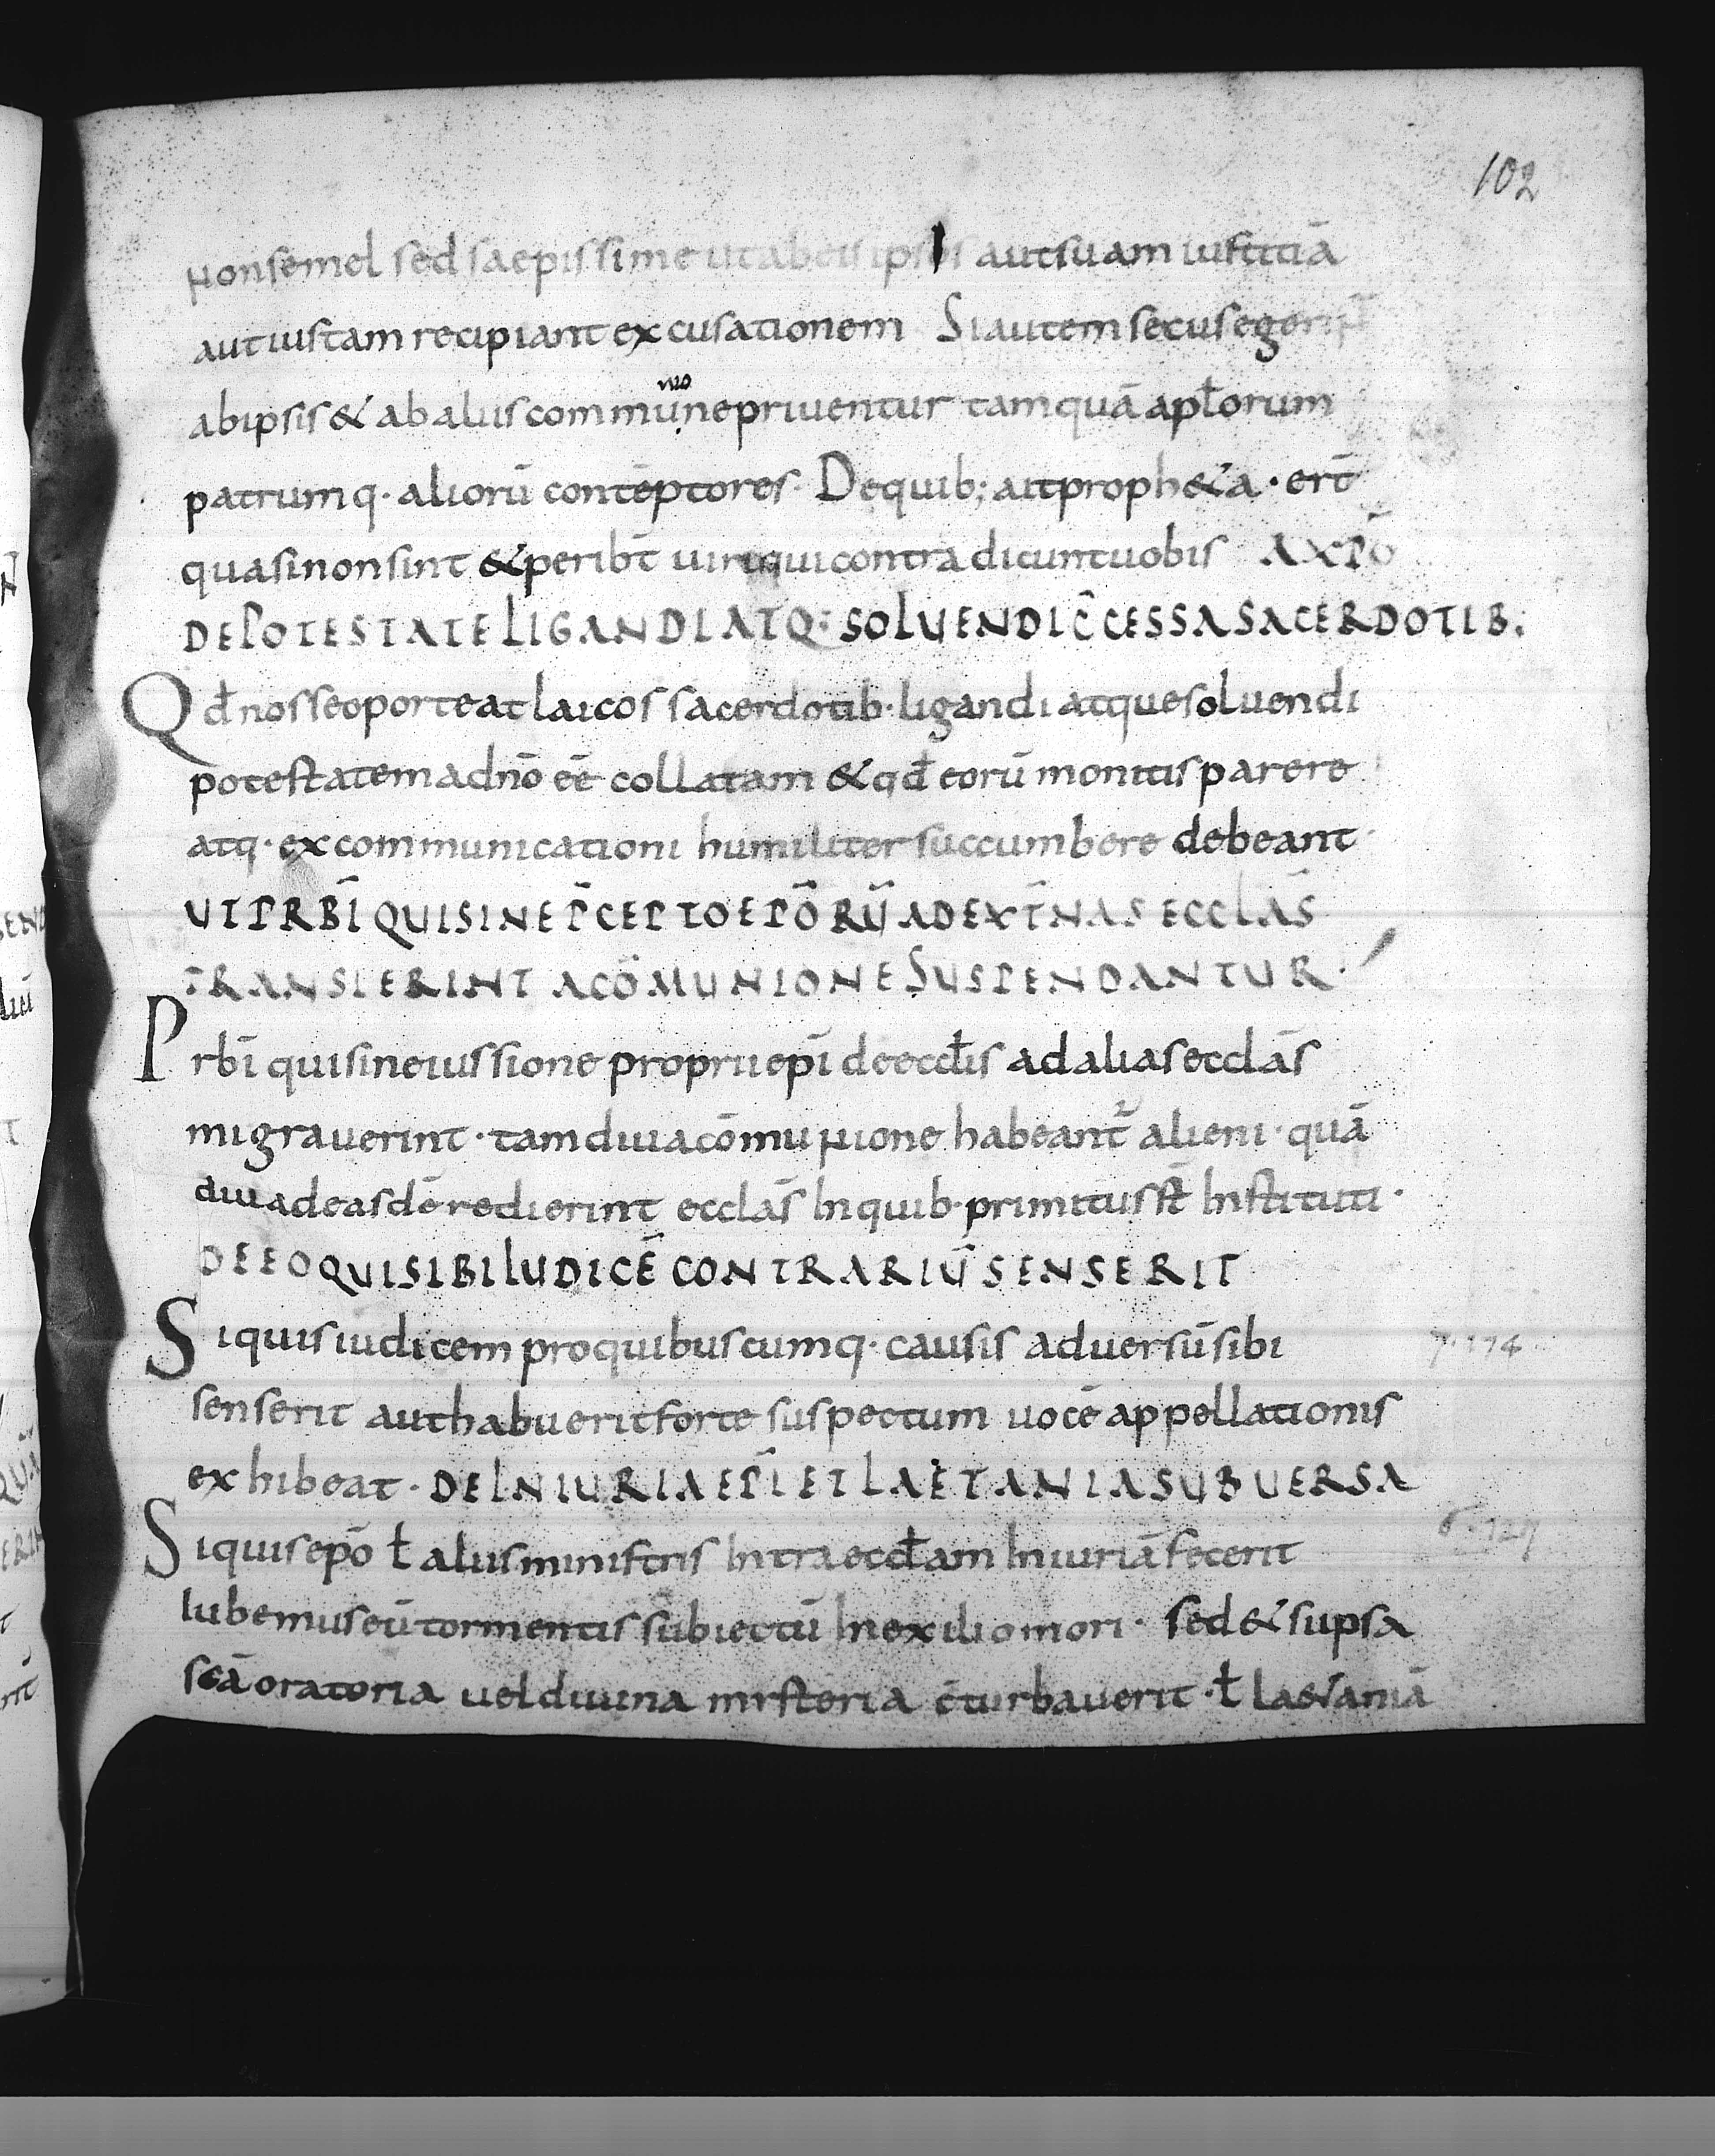 102
non semel sed saepissime ut ab eis ipsis aut suam iustitiā
aut iustam recipiant excusationem Si autem secus egerint
ab ipsis & ab aliis commune priuentur tamquā aplorum
patrumq· aliorū contēptores· De quib; ait proph&a · ert̄
quasi non sint & peribt̄ uiri qui contradicunt uobis A XPŌ
DE POTESTATE LIGANDI ATQ: SOLUENDI C̄CESSA SACERDOTIB;
Qđ nosse oporteat laicos sacerdotib· ligandi atque soluendi
potestatem a dn̄o eē collatam & qđ eorū monitis parere
atq· excommunicationi humiliter succumbere debeant·
UT PRB̄I QUI SINE P̄CEPTO EPŌRŪ AD EXT̄NAS ECCLĀS
TRANSIERINT A CŌMUNIONE SUSPENDANTUR·
Prb̄i qui sine iussione proprii epī de eccłis ad alias ecclās
migrauerint · tamdiu a cōmunione habeant̄ alieni · quā
diu ad easdē redierint ecclās In quib· primitus st̄ Instituti ·
DE EO QUI SIBI IUDICĒ CONTRARIŪ SENSERIT
Si quis iudicem pro quibuscumq· causis aduersū sibi
7·174
senserit aut habuerit forte suspectum uocē appellationis
exhibeat · DE INIURIA EPĪ ET LAETANIA SUBUERSA
Si quis epō ł aliis ministris Intra eccłam Iniuriā fecerit
6·127
Iubemus eū tormentis subiectū In exilio mori · sed & si ipsa
scā oratoria uel diuina misteria c̄turbauerit · ł la&aniā